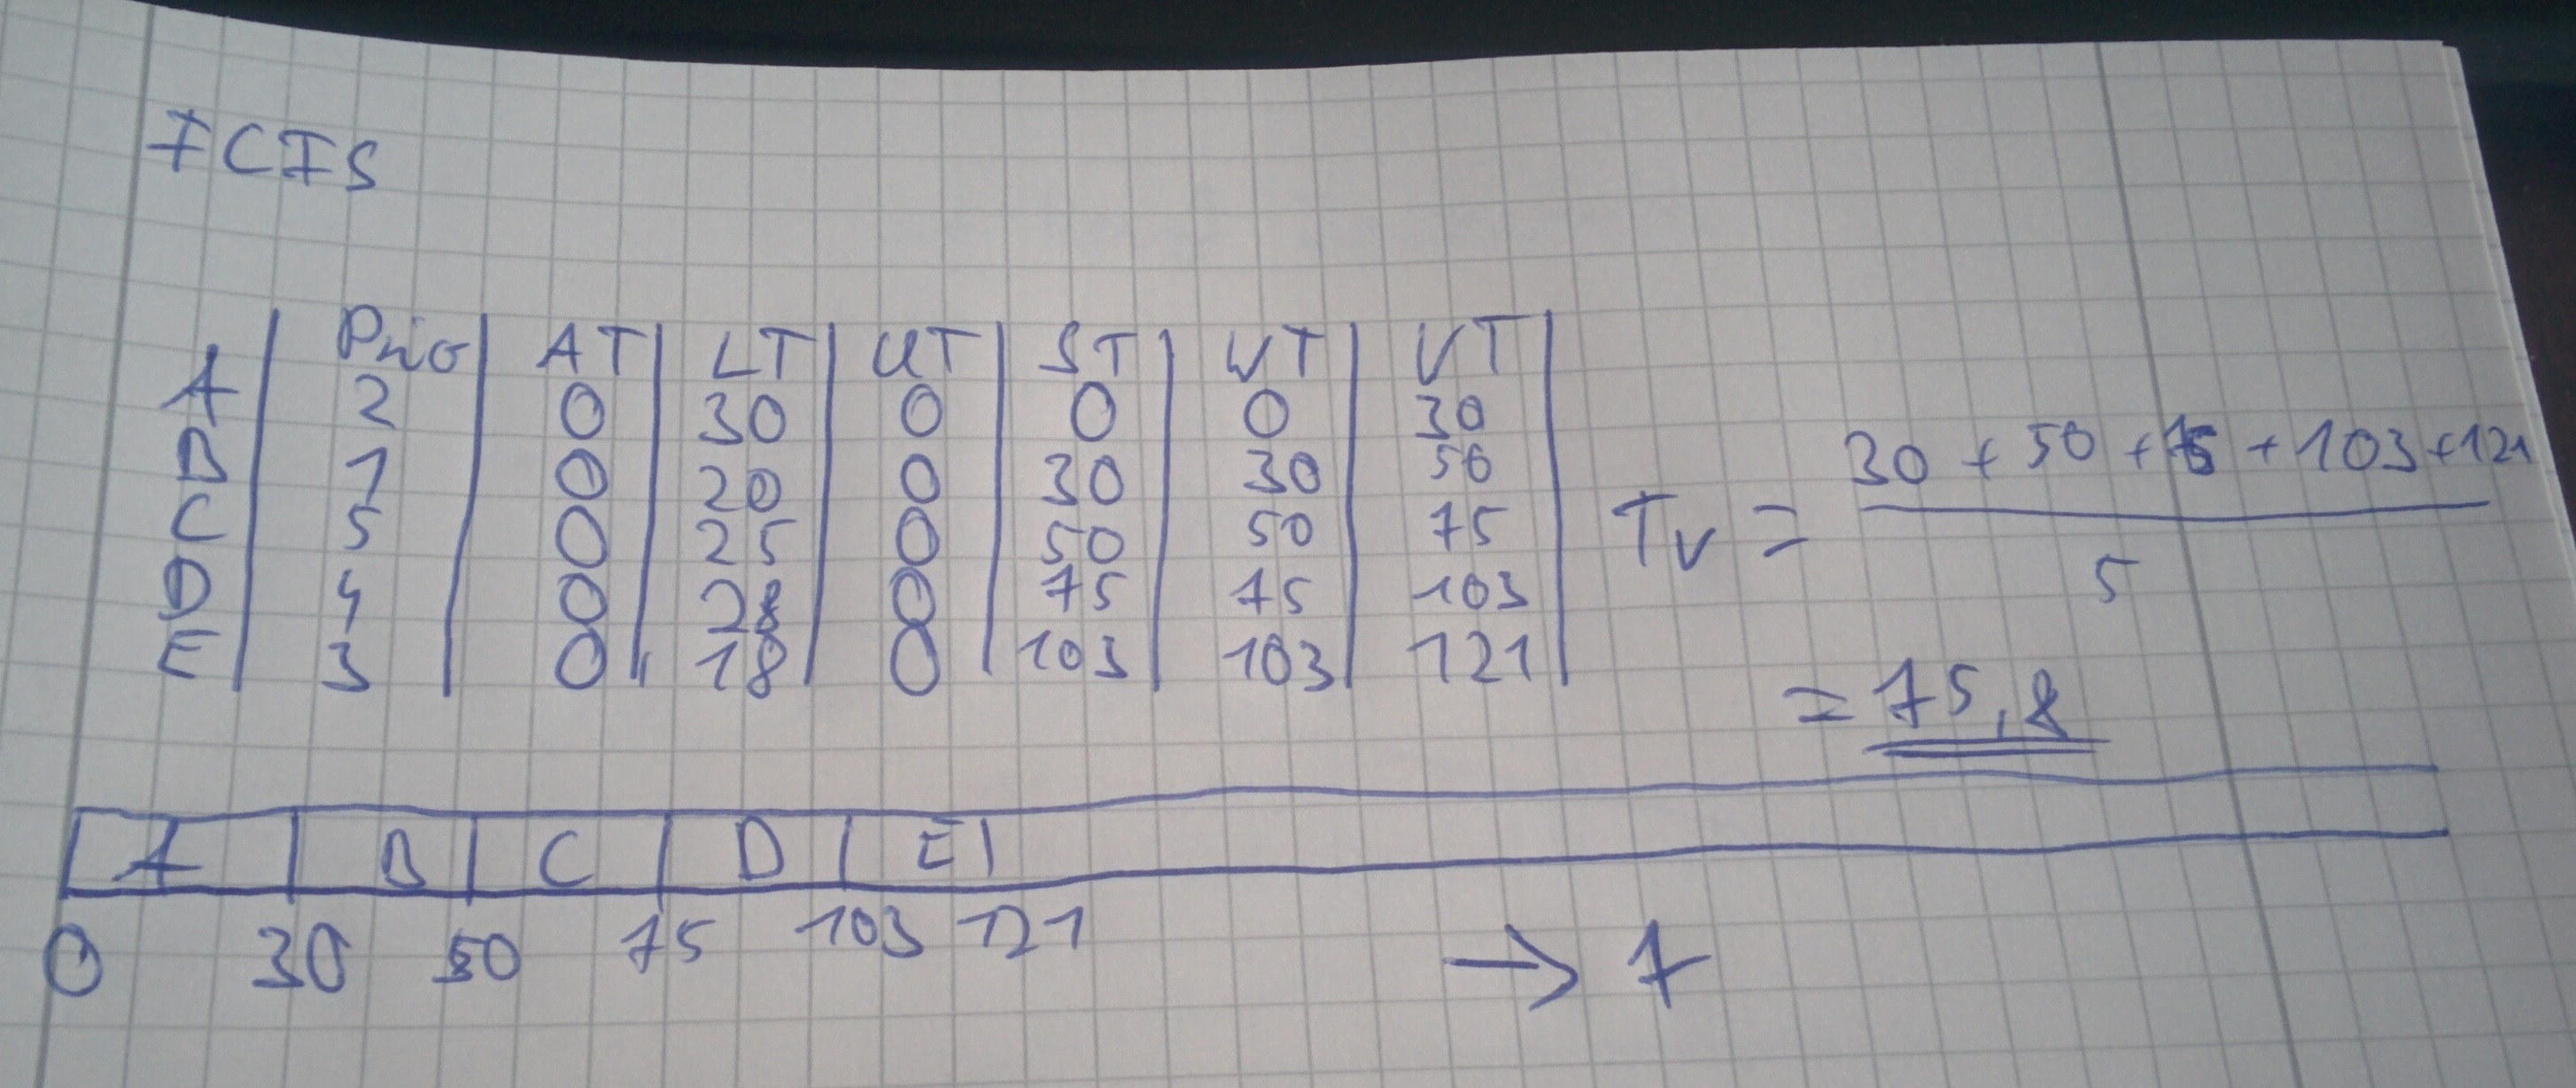 FCFS
Prio AT LT UT ST WT VT
A 2 0 30 0 0 0 30
B 1 0 20 0 30 30 50
C 5 0 25 0 50 50 75
D 4 0 28 0 75 75 103
E 3 0 18 0 103 103 121
Tv = 30 + 50 + 75 + 103 + 121
5
= 75,8
A B C D E
0 30 50 75 103 121
→